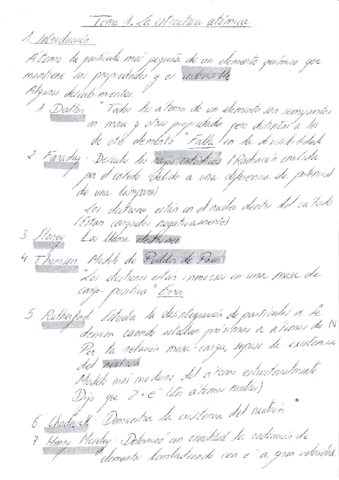 Tema 1. La estructura atómica
1. Introducción
Átomo: la partícula más pequeña de un elemento químico que
mantiene las propiedades y es indivisible
Algunos descubrimientos:
1. Dalton: "Todos los átomos de un elemento son semejantes
en masa y otras propiedades pero distintos a los
de otro elemento" Falla en la divisibilidad
2. Faraday: Descubre los rayos catódicos (Radiación emitida
por el cátodo debido a una diferencia de potencial
de una lámpara)
Los electrones están en el núcleo dentro del cátodo
(Están cargados negativamente)
3. Los llama electrones
4. Thomson: Modelo de Pudding de Pasas
"Los electrones están inmersos en una masa de
carga positiva" Error
5. Rutherford: Estudia la desintegración de partículas α. Se
desvían cuando estaban próximas a átomos de N
Por la relación masa-carga, supuso la existencia
del neutrón
Modelo más moderno del átomo estructuralmente
Dijo que Z = e⁻ (En átomos neutros)
6. Chadwick: Demuestra la existencia del neutrón
7. Henry Moseley: Determinó en cantidad la
elementos bombardeando con e⁻ a gran velocidad